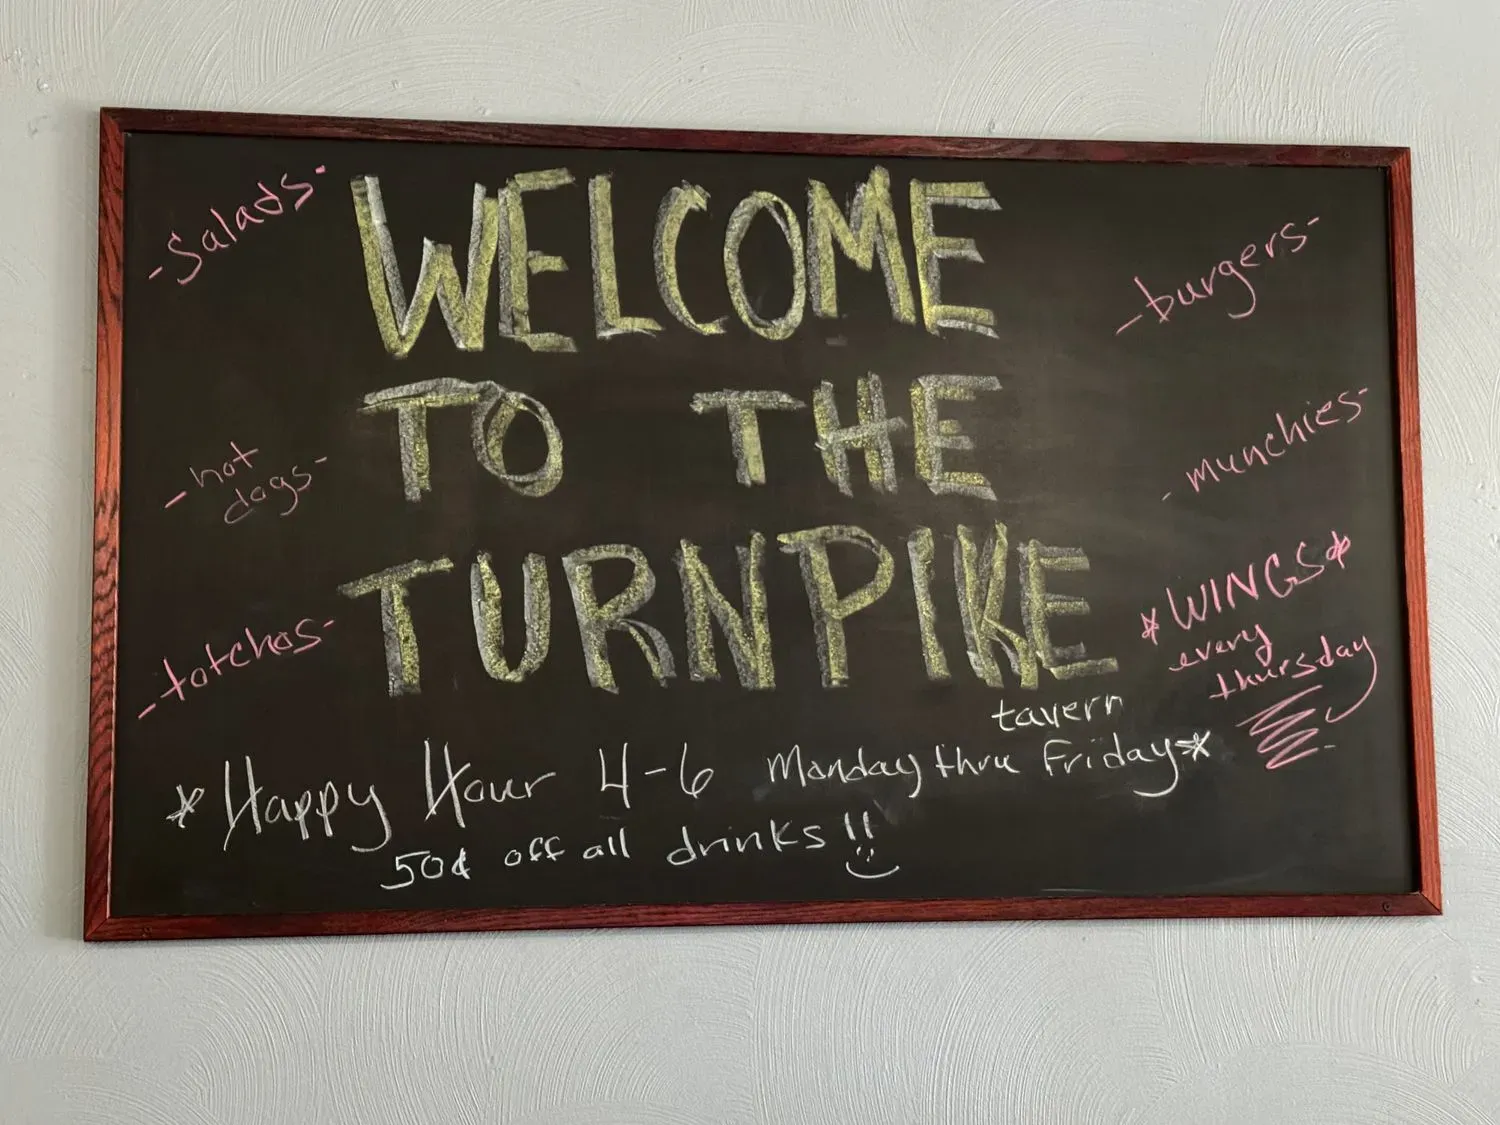 WELCOME
TO THE
TURNPIKE
tavern
-Salads-
-hot
dogs-
-totchos-
-burgers-
-munchies-
*WINGS*
every
thursday
*Happy Hour 4-6 Monday thru Friday*
50¢ off all drinks!!